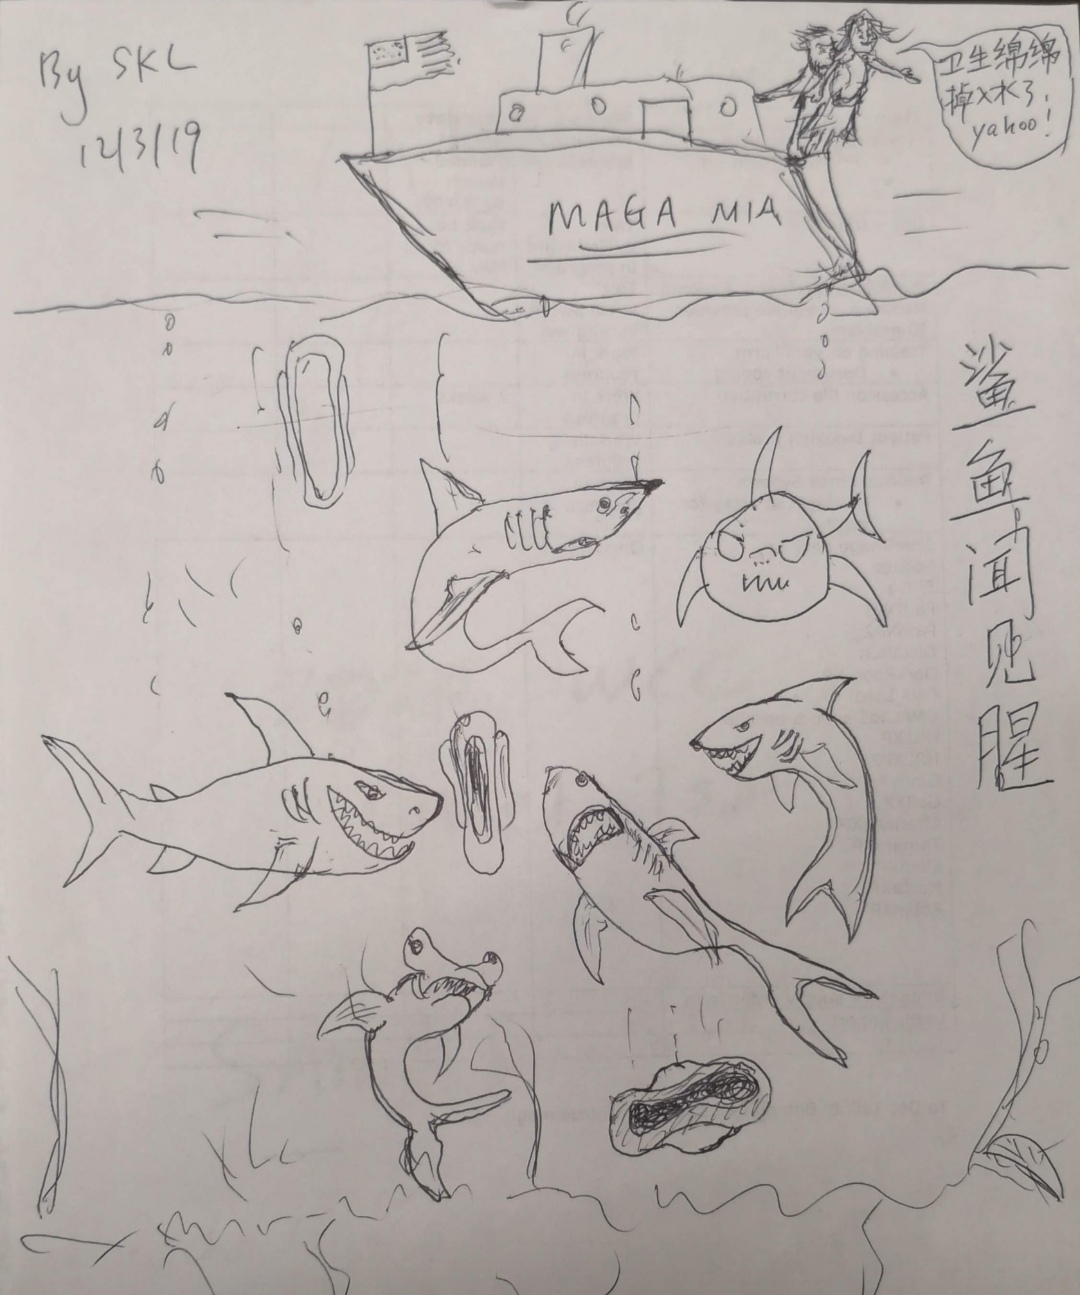 By SKL
12/3/19
MAGA MIA
卫生绵绵
掉入水了,
yahoo!
鲨鱼闻见腥